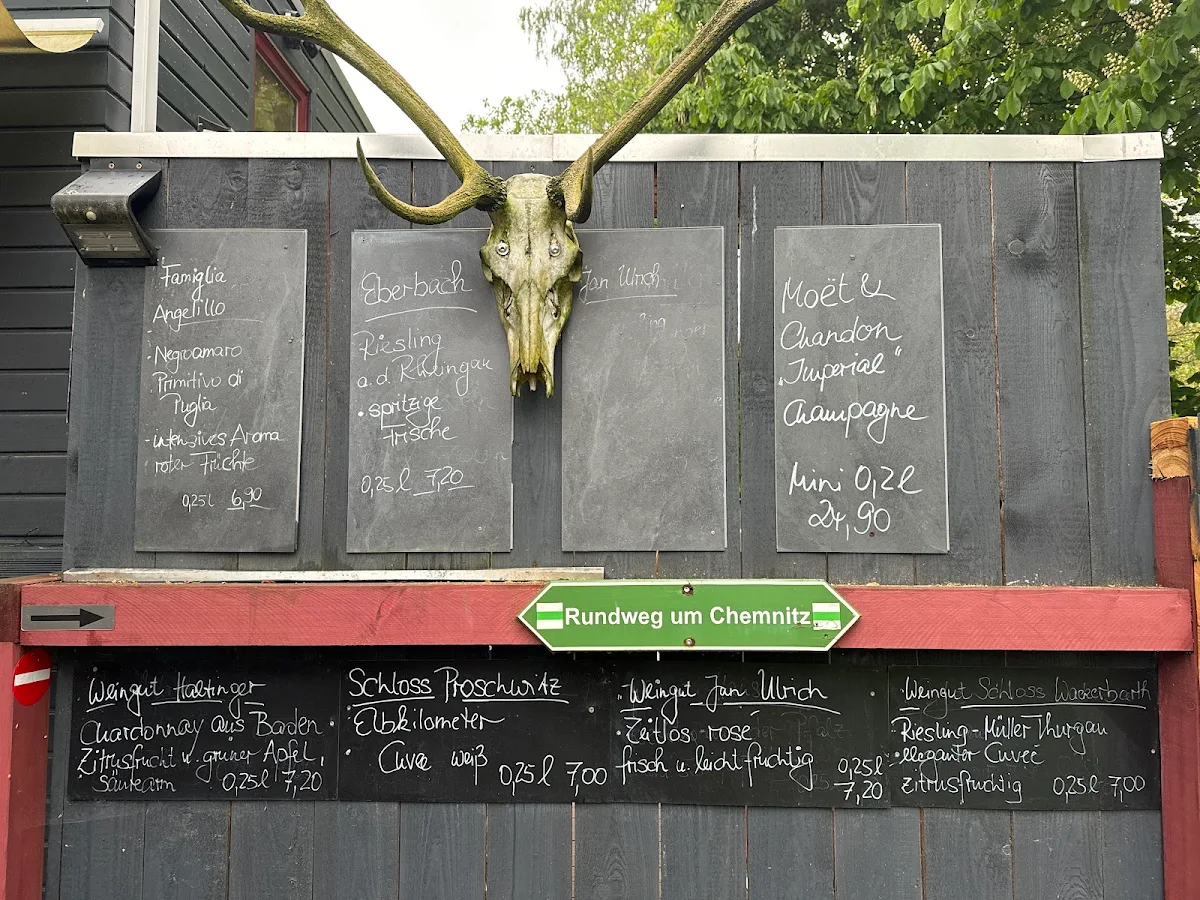 Famiglia
Angelillo
· Negroamaro
Primitivo di
Puglia
· intensives Aroma
roter Früchte
0,25l 6,90
Eberbach
Riesling
a.d. Rheingau
· spritzige
Frische
0,25l 7,20
Jan Ulrich
Moët &
Chandon
„Imperial“
Champagne
Mini 0,2l
24,90
Rundweg um Chemnitz
Weingut Haltinger
Chardonnay aus Baden
Zitrusfrucht u. grüner Apfel,
Säurearm 0,25l 7,20
Schloss Proschwitz
· Elbkilometer
· Cuvée weiß
0,25l 7,00
· Weingut Jan Ulrich
· Zeitlos rosé
frisch u. leicht fruchtig
0,25l
7,20
· Weingut Schloss Wackerbarth
Riesling-Müller Thurgau
· eleganter Cuveé
zitrusfruchtig 0,25l 7,00